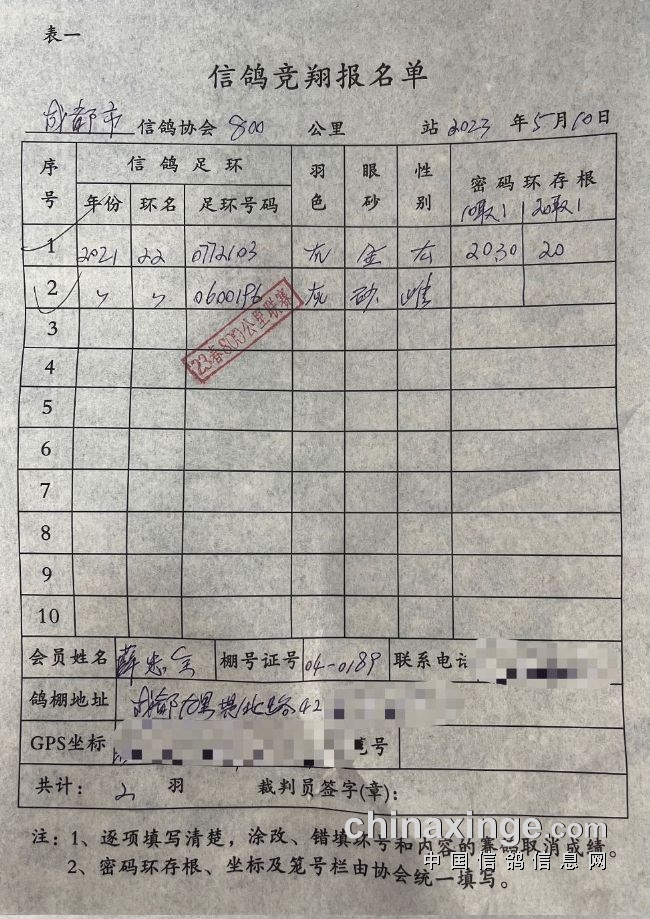 表一
信鸽竞翔报名单
成都市 信鸽协会 800 公里 站 2023 年 5 月 10 日
序号 信鸽足环 羽色 眼砂 性别 密码环存根
年份 环名 足环号码 10取1 20取1
1 2021 22 0772103 灰 金 2030 20
2 〃 〃 0600196 灰 砂 雌
23春800公里联赛
3
4
5
6
7
8
9
10
会员姓名 薛忠 棚号证号 04-0189 联系电话
鸽棚地址 成都 北路42
GPS坐标 笼号
共计: 2 羽 裁判员签字(章):
注: 1、逐项填写清楚，涂改、错填环号和内容的赛鸽取消成绩。
2、密码环存根、坐标及笼号栏由协会统一填写。
chinaxinge.com
中国信鸽信息网